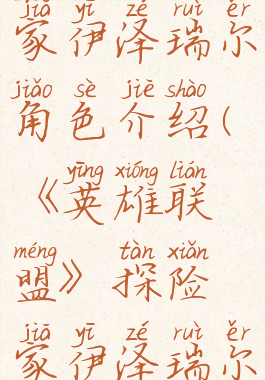 jiā yī zé ruì ěr
家伊泽瑞尔
jiǎo sè jiè shào
角色介绍(
yīng xióng lián
《英雄联
méng tàn xiǎn
盟》探险
jiā yī zé ruì ěr
家伊泽瑞尔